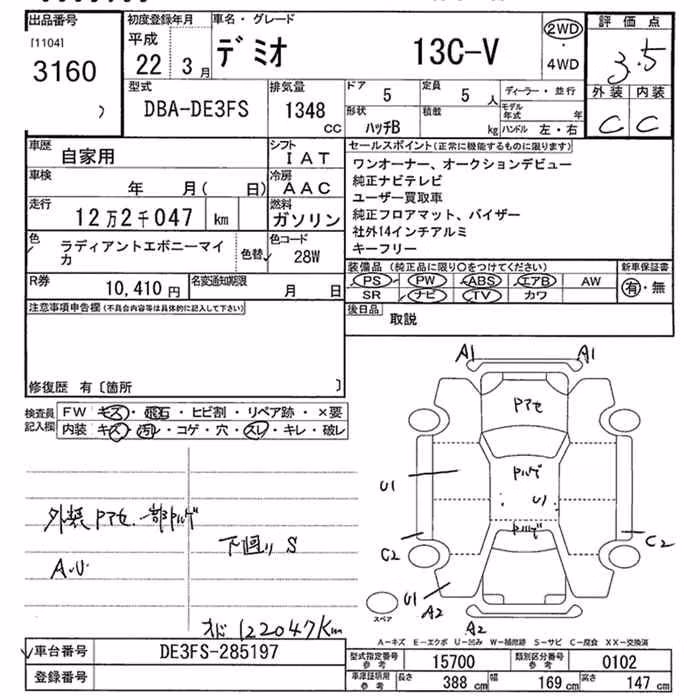 出品番号
[1104]
3160
初度登録年月
平成
22 3月
車名・グレード
デミオ 13C-V
2WD
・
4WD
評価点
3.5
外装 内装
C C
型式
DBA-DE3FS
排気量
1348
CC
ドア
5
定員
5 人
形状
ハッチB
積載
kg
ディーラー・並行
モデル年式 年
ハンドル 左・右
車歴
自家用
シフト
IAT
車検
年 月( 日)
冷房
AAC
走行
12万2千047 km
燃料
ガソリン
色
ラディアントエボニーマイカ
色替
色コード
28W
R券
10,410 円
名変通知期限
月 日
セールスポイント(正常に機能するものに限ります)
ワンオーナー、オークションデビュー
純正ナビテレビ
ユーザー買取車
純正フロアマット、バイザー
社外14インチアルミ
キーフリー
装備品(純正品に限り○をつけてください)
新車保証書
PS PW ABS エアB AW
SR ナビ TV カワ
有・無
後日品
取説
注意事項申告欄(不具合内容等は具体的に記入して下さい)
修復歴 有〔箇所 〕
検査員
記入欄
FW キズ・飛石・ヒビ割・リペア跡・×要
内装 キズ・汚レ・コゲ・穴・スレ・キレ・破レ
外装 Pアセ、一部Pハゲ
下廻り S
A.U
オド 122047Km
A1 A1
Pアセ
U1
Pハゲ
U1
Pハゲ
C2
C2
U1
A2
A2
スペア
A-キズ E-エクボ U-凹み W-補修跡 S-サビ C-腐食 XX-交換済
車台番号
DE3FS-285197
登録番号
型式指定番号
参考
15700
類別区分番号
参考
0102
車庫証明用
参考
長さ
388 cm
幅
169 cm
高さ
147 cm